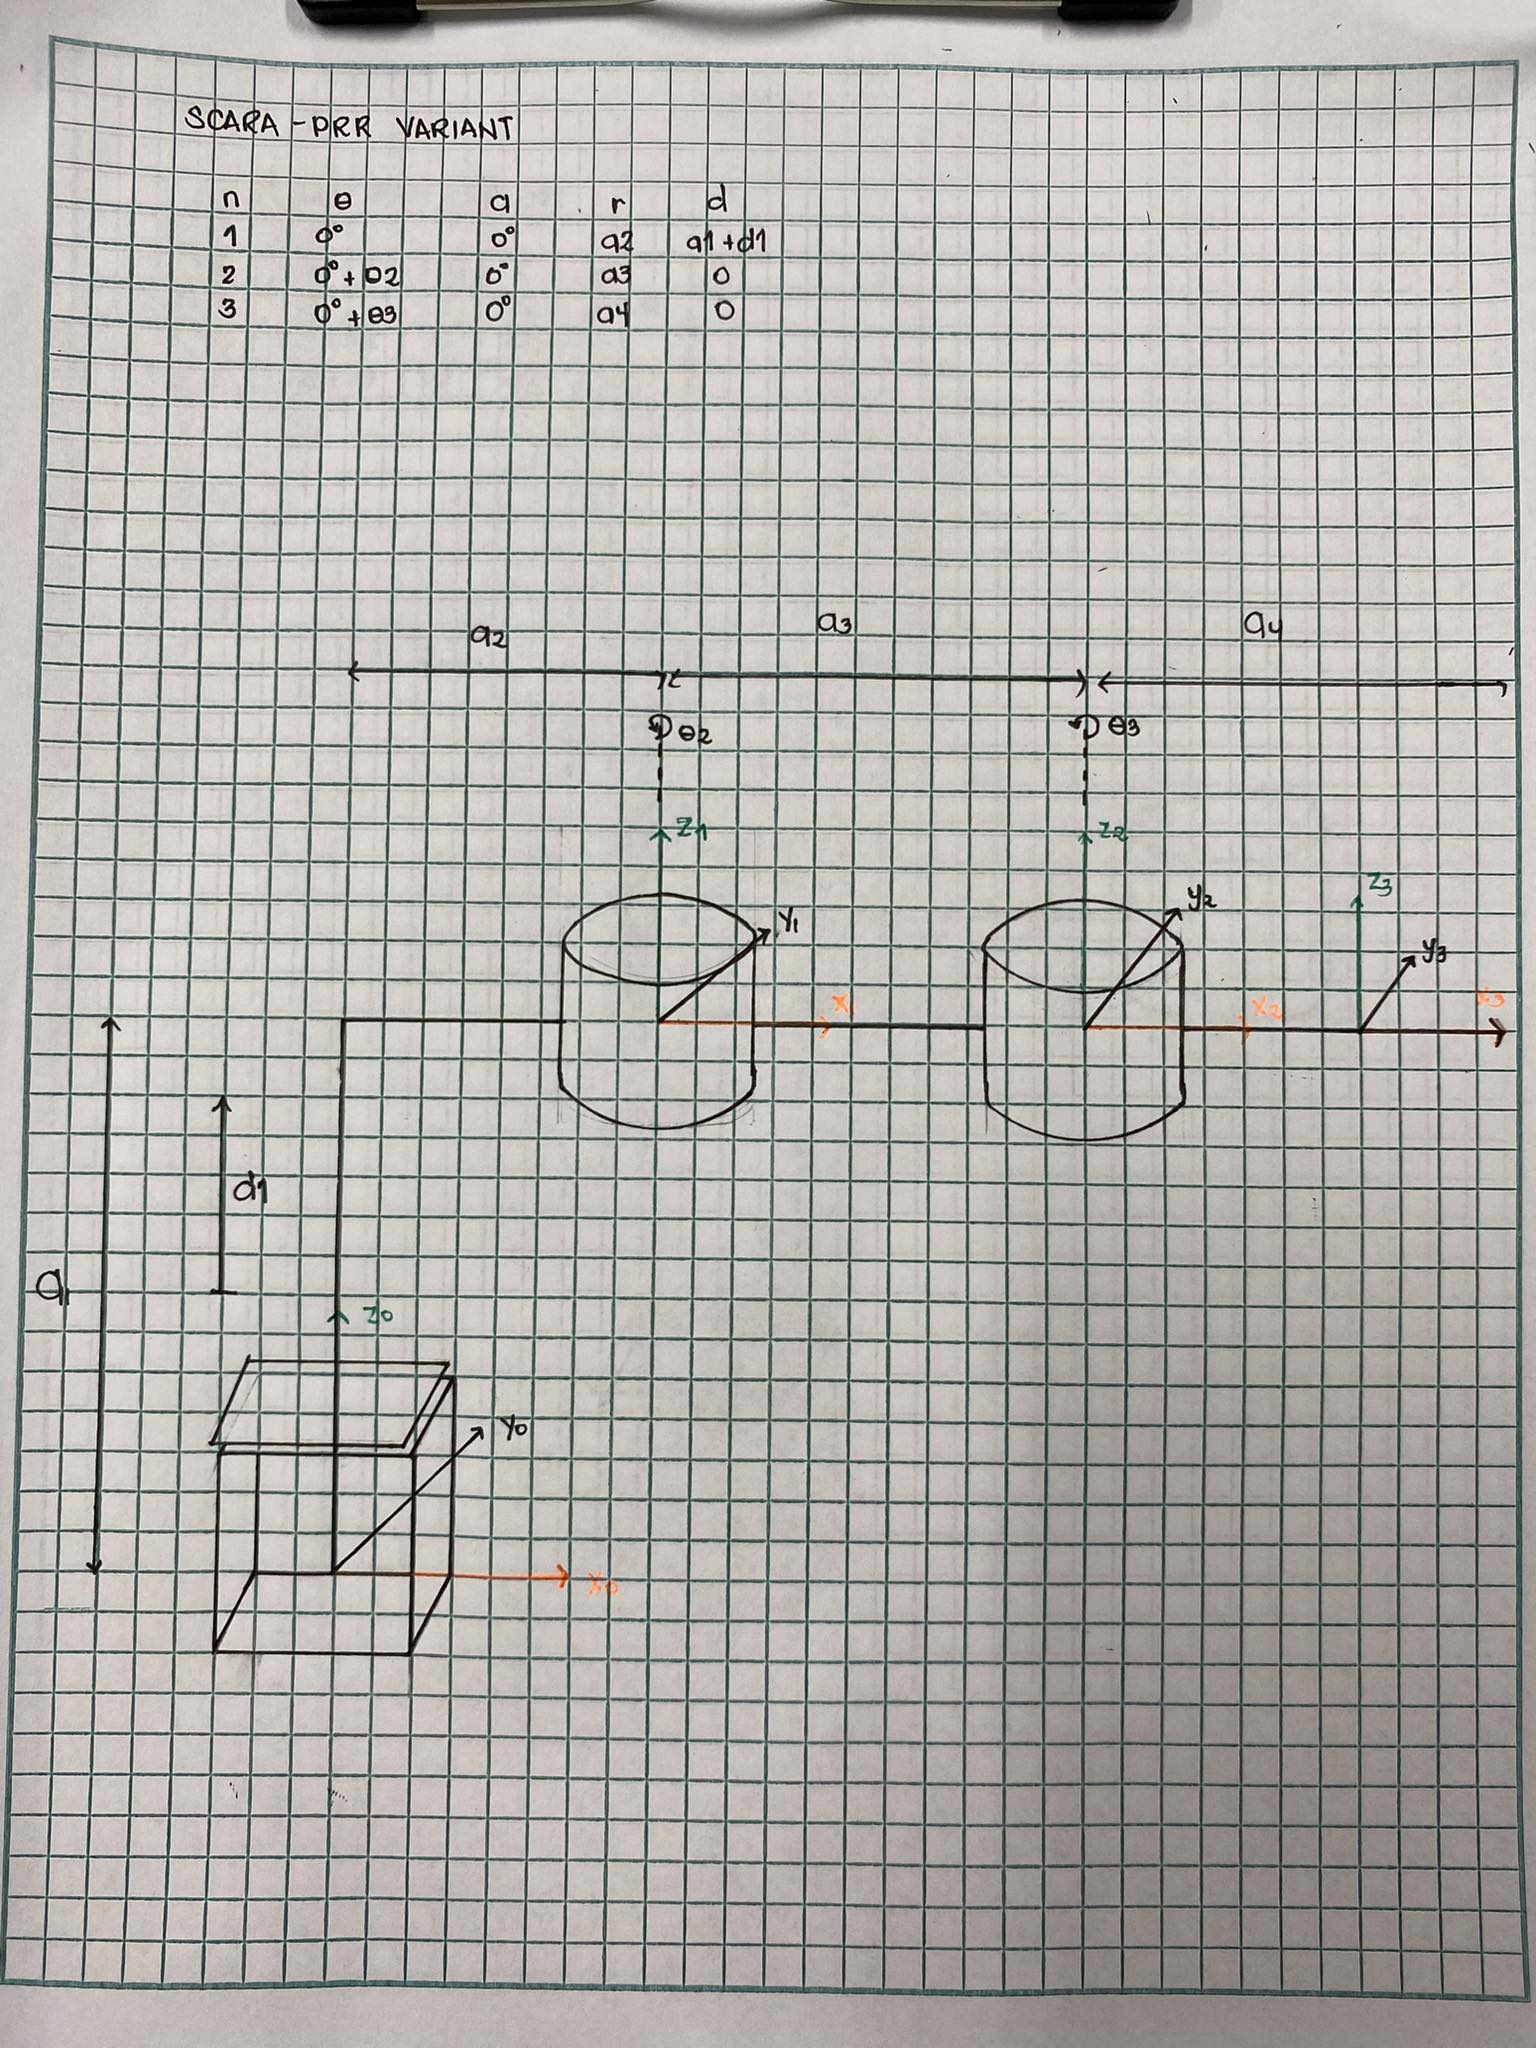 SCARA - PRR VARIANT
n θ α r d
1 0° 0° a2 a1+d1
2 0°+θ2 0° a3 0
3 0°+θ3 0° a4 0
a2 a3 a4
θ2 θ3
Z1 Z2
Z3
Y1 Y2
Y3
X1 X2 X3
d1
a1
Z0
Y0
X0